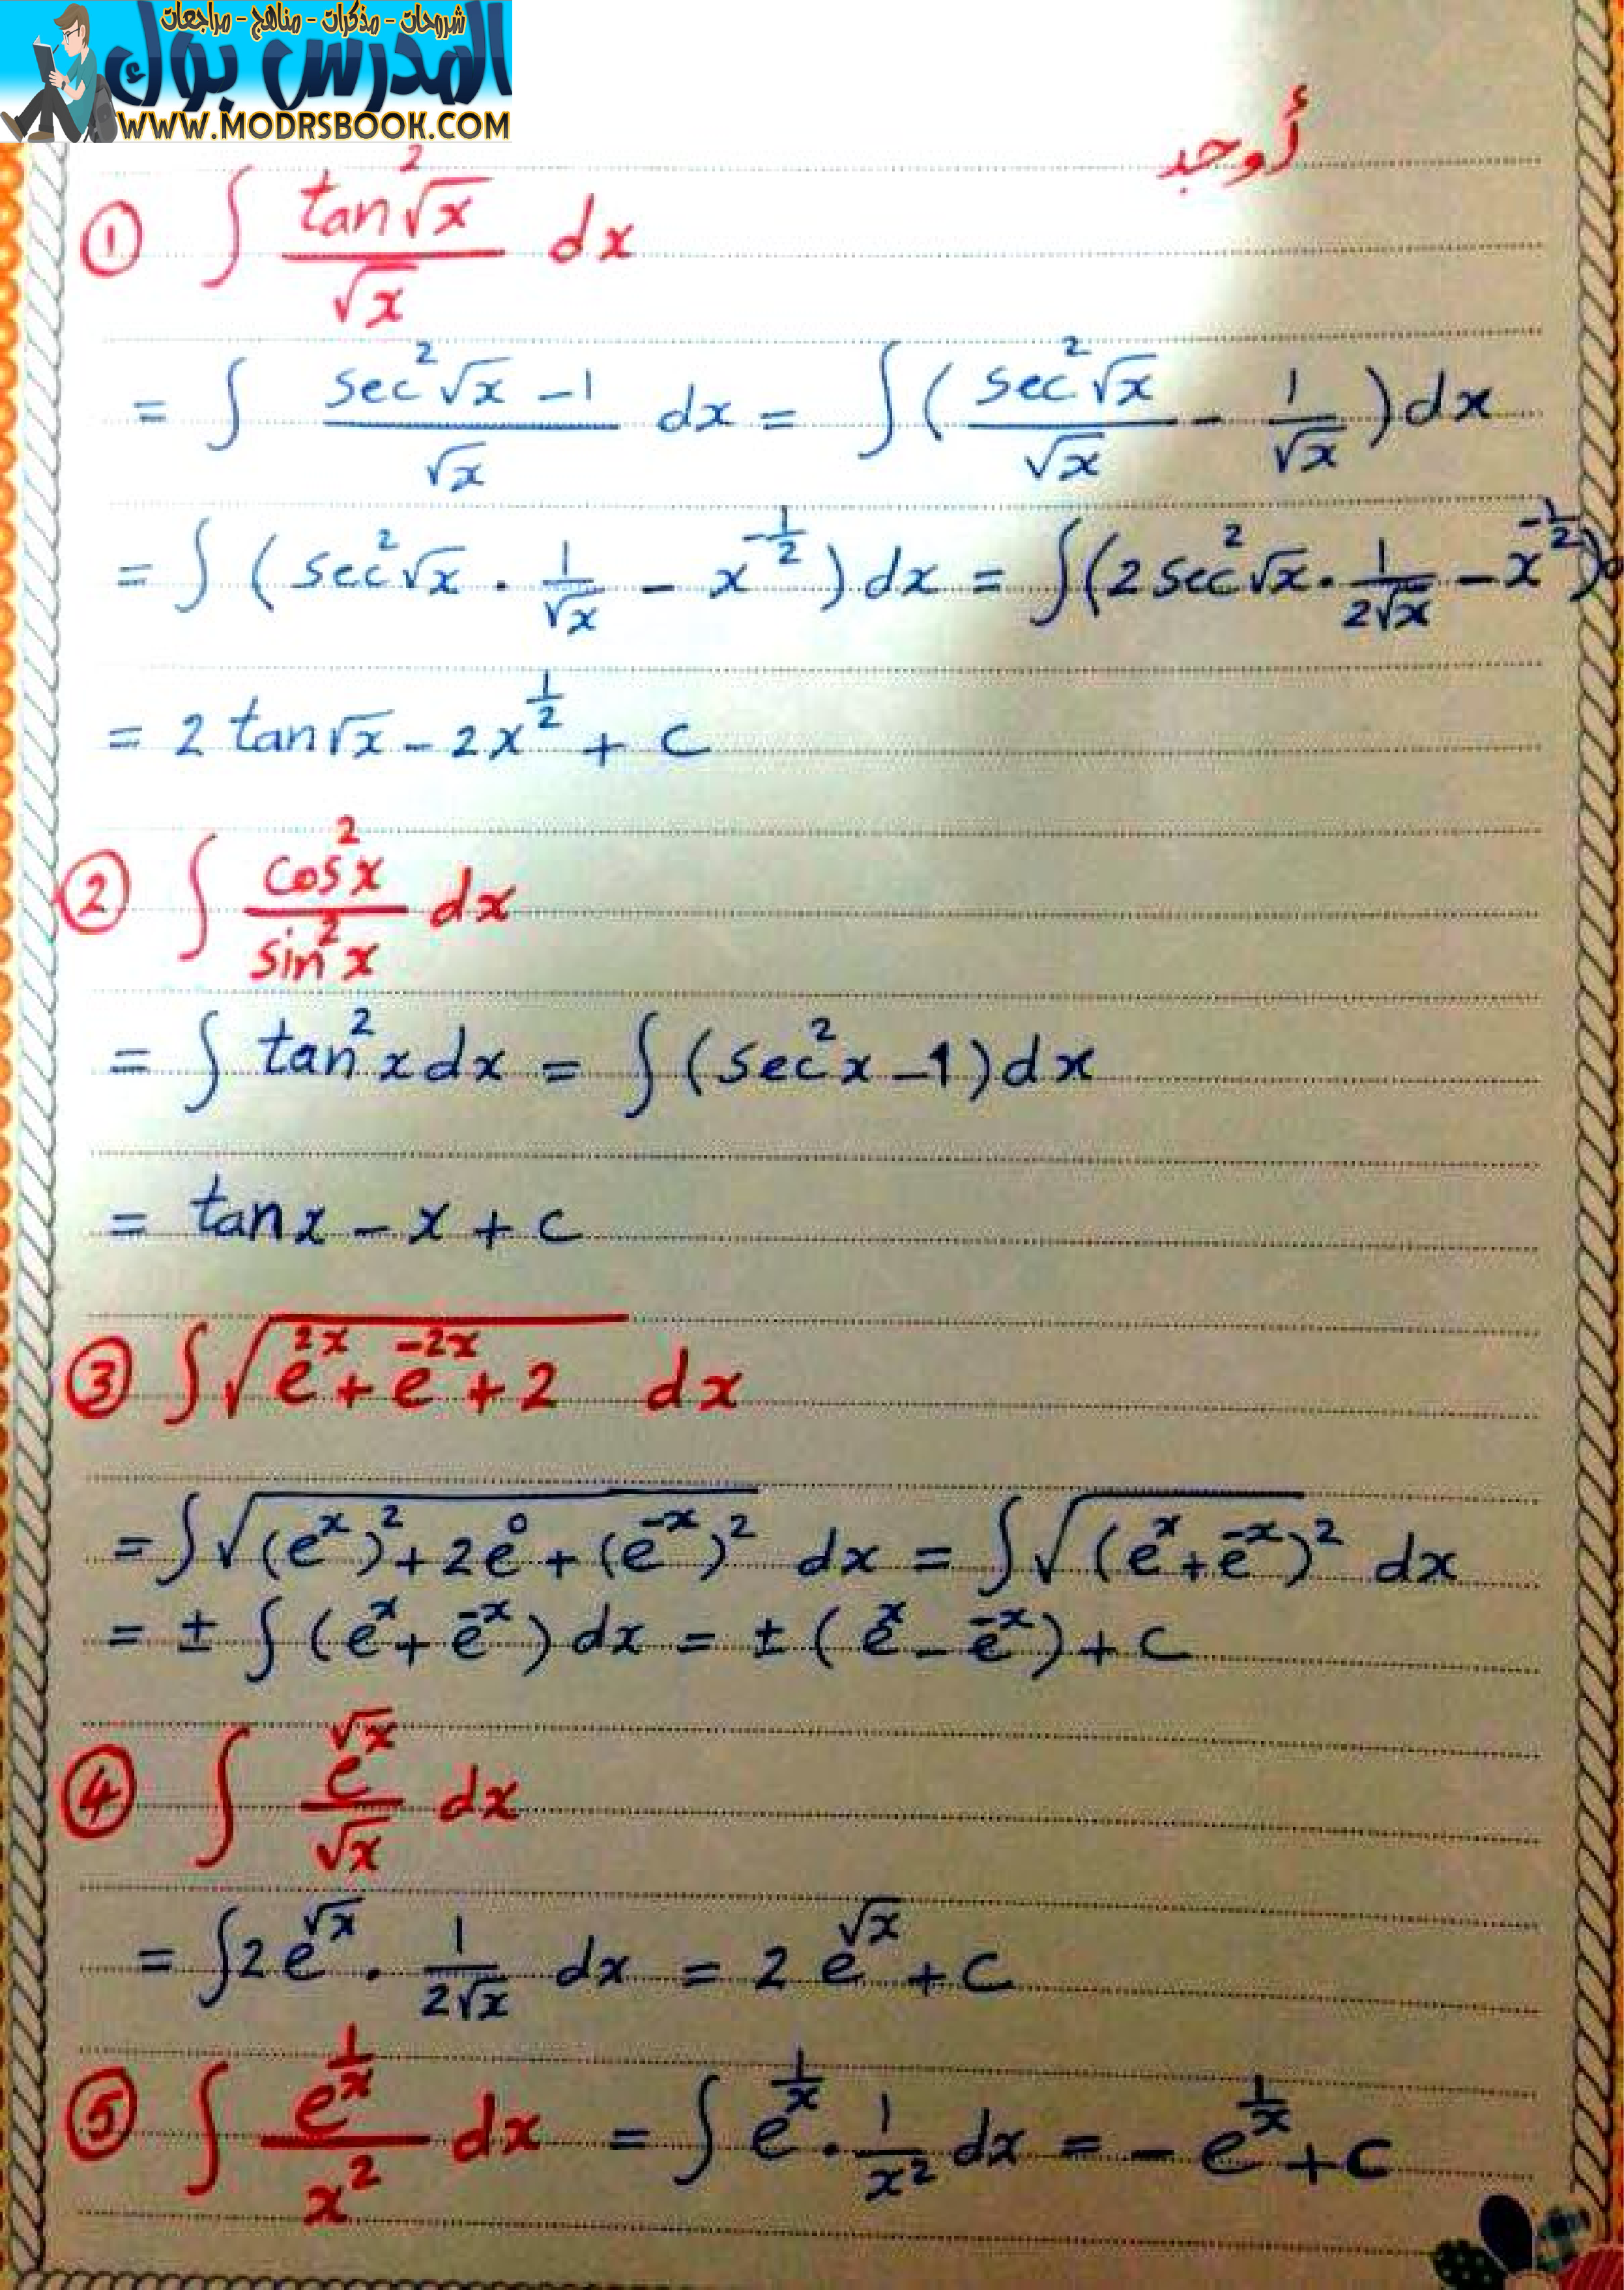 شروحات - مذكرات - مناهج - مراجعات
المدرس بوك
WWW.MODRSBOOK.COM
أوجد
① ∫ tan²√x / √x dx
= ∫ (sec²√x - 1) / √x dx = ∫ ( sec²√x / √x - 1/√x ) dx
= ∫ ( sec²√x . 1/√x - x^(-1/2) ) dx = ∫ ( 2 sec²√x . 1/(2√x) - x^(-1/2) ) d
= 2 tan√x - 2x^(1/2) + c
② ∫ cos²x / sin²x dx
= ∫ tan²x dx = ∫ (sec²x - 1) dx
= tan x - x + c
③ ∫ √(e^(2x) + e^(-2x) + 2) dx
= ∫ √((e^x)² + 2e^0 + (e^(-x))²) dx = ∫ √((e^x + e^(-x))²) dx
= ± ∫ (e^x + e^(-x)) dx = ± (e^x - e^(-x)) + c
④ ∫ e^(√x) / √x dx
= ∫ 2 e^(√x) . 1/(2√x) dx = 2 e^(√x) + c
⑤ ∫ e^(1/x) / x² dx = ∫ e^(1/x) . 1/x² dx = - e^(1/x) + c